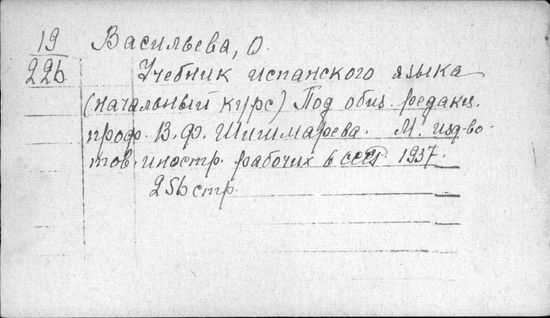 19 Васильева, О.
22б Учебник испанского языка
(начальный курс) Под общ. редакц.
проф. В.Ф. Шишмарева. М. изд-во
тов. иностр. рабочих в СССР 1937.
256 стр.